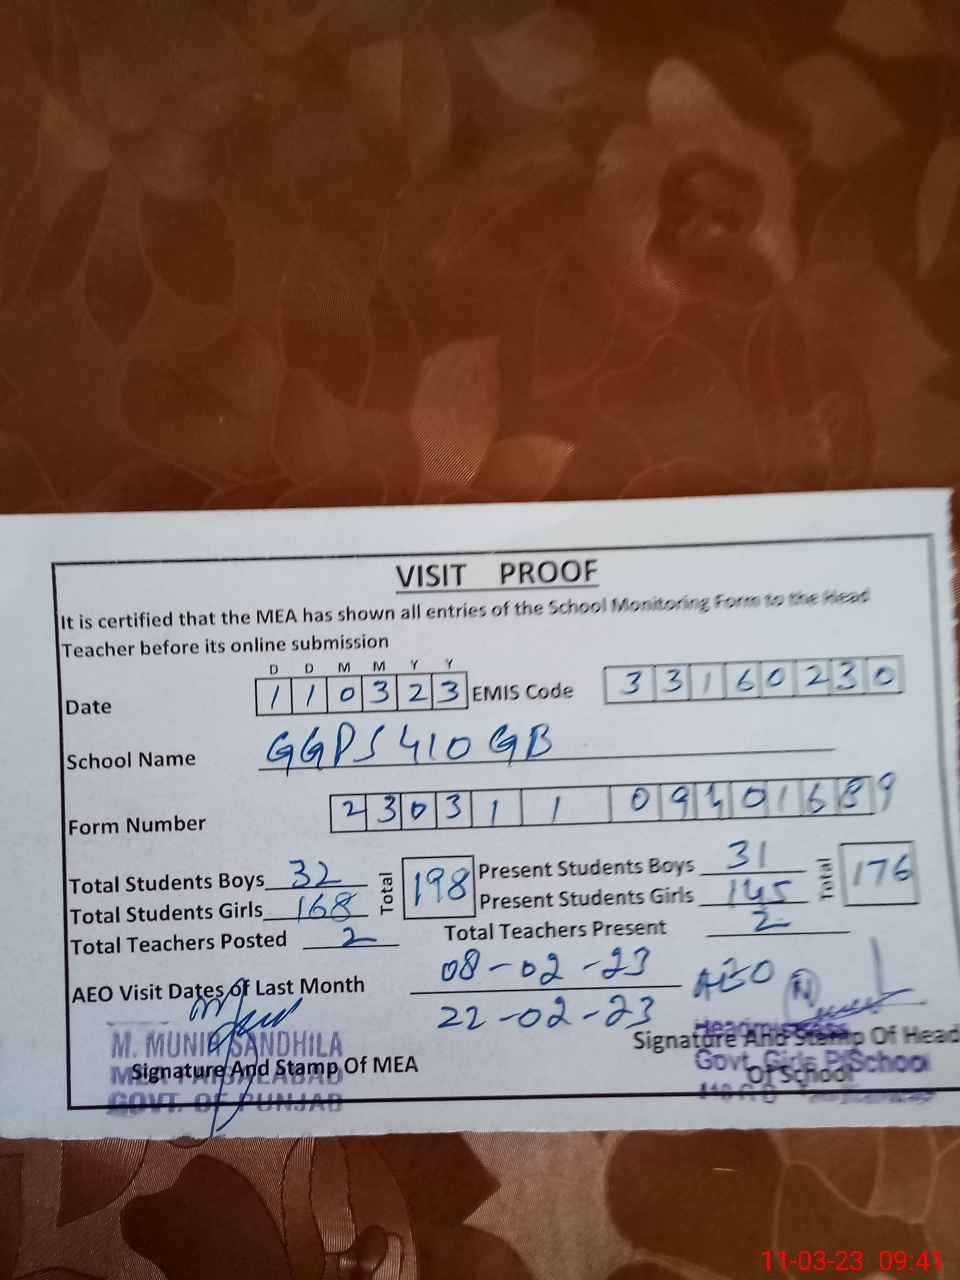 VISIT PROOF
It is certified that the MEA has shown all entries of the School Monitoring Form to the Head
Teacher before its online submission
D D M M Y Y
Date 1 1 0 3 2 3 EMIS Code 3 3 1 6 0 2 3 0
School Name GGPS 410 GB
Form Number 2 3 0 3 1 1 0 9 4 0 1 6 8 9
Total Students Boys 32 Total 198 Present Students Boys 31 Total 176
Total Students Girls 168 Present Students Girls 145
Total Teachers Posted 2 Total Teachers Present 2
AEO Visit Dates of Last Month 08-02-23 AEO
22-02-23
M. MUNIR SANDHILA
Signature And Stamp Of MEA
GOVT. OF PUNJAB
Signature And Stamp Of Head
Of School
Headmistress
Govt. Girls P/School
11-03-23 09:41